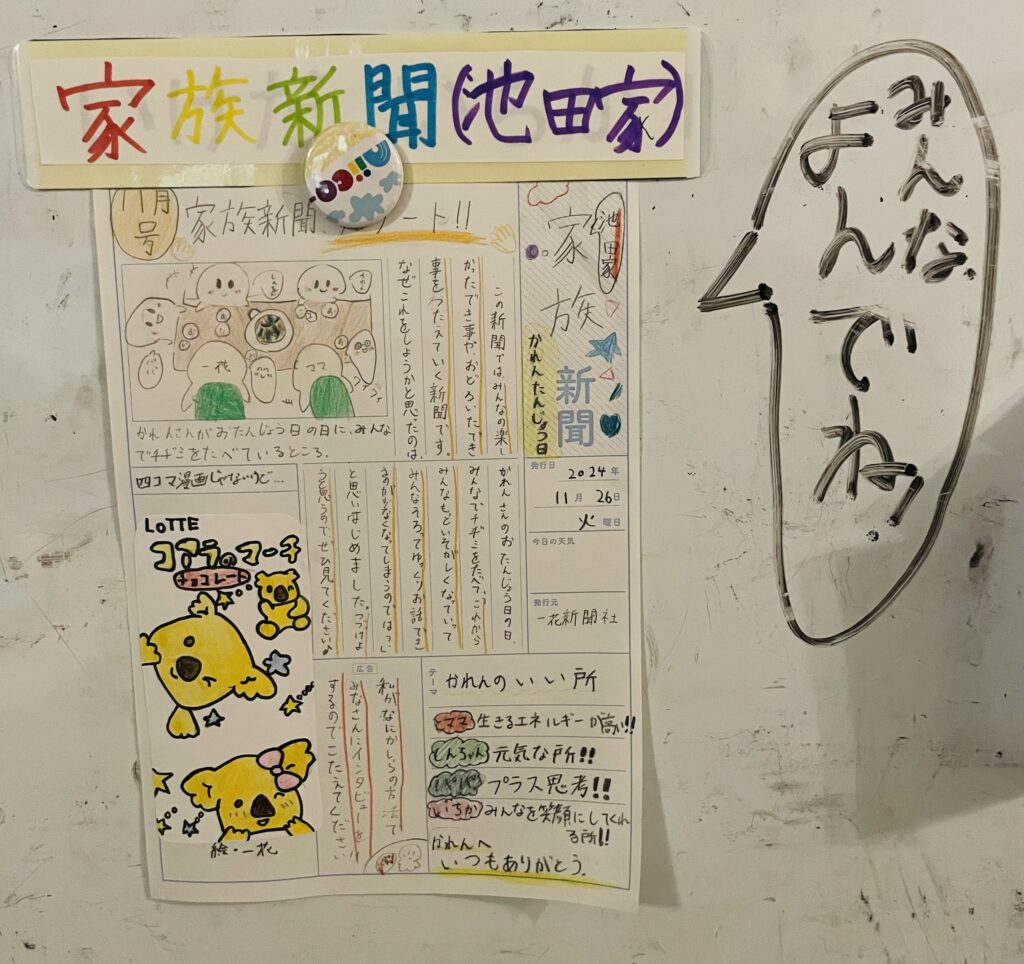 家族新聞(池田家)
みんな
よんでね!
11月号
家族新聞
ート!!
池田家
家族
新聞
かれんたんじょう日
この新聞では、みんなの楽し
かったでき事や、おどろいたでき
事をつたえていく新聞です。
なぜこれをしようかと思ったのは、
一花
ママ
かれんさんがおたんじょう日の日に、みんな
でチヂミをたべているところ。
発行日
2024年
11月26日
火曜日
今日の天気
発行元
一花新聞社
かれんさんのおたんじょう日の日、
みんなでチヂミをたべて、これから
みんなもどいそがしくなっていって
みんなそろってゆっくりお話できる
のがなくなってしまうのでは…
と思いはじめました。つづけよ
うと思うのでぜひ見てください♪
四コマ漫画じゃないけど…
LOTTE
コアラのマーチ
チョコレート
絵・一花
広告
私がなにかしらの方法で
みなさんにインタビューを
するのでこたえてください!
テーマ
かれんのいい所
ママ 生きるエネルギーが高い!!
とんちゃん 元気な所!!
パパ プラス思考!!
いちか みんなを笑顔にしてくれ
る所!!
かれんへ
いつもありがとう。